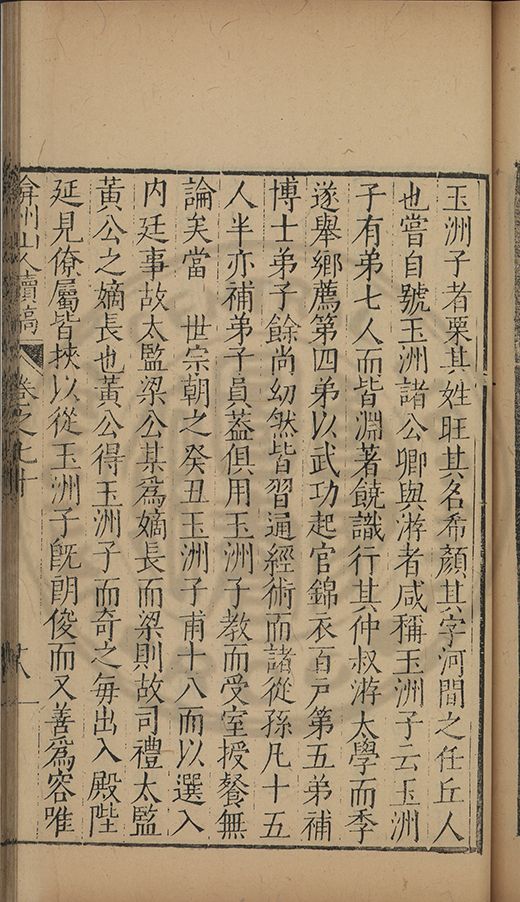 玉洲子者栗其姓旺其名希顏其字河間之任丘人
也嘗自號玉洲諸公卿與游者咸稱玉洲子云玉洲
子有弟七人而皆淵著饒識行其仲叔游太學而季
遂舉鄉薦第四弟以武功起官錦衣百戶第五弟補
博士弟子餘尚幼然皆習通經術而諸從孫凡十五
人半亦補弟子員蓋俱用玉洲子教而受室授餐無
論矣當 世宗朝之癸丑玉洲子甫十八而以選入
內廷事故太監梁公某為嫡長而梁則故司禮太監
黃公之嫡長也黃公得玉洲子而奇之每出入殿陛
延見僚屬皆挾以從玉洲子既朗俊而又善為容唯
弇州山人續稿 卷之七十 廿八